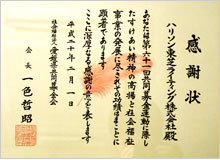 感謝状
ハリソン東芝ライティング株式会社殿
あなたは第六十一回共同募金運動に際し
たすけあい精神の高揚と社会福祉
事業の発展に尽された功績はまことに
顕著であります
ここに深厚なる感謝の意を表します
平成二十年二月一日
社会福祉法人愛媛県共同募金会
会長 一色哲昭